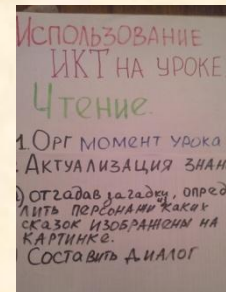 Использование
ИКТ на уроке
Чтение.
1. Орг момент урока
Актуализация знан
а) отгадав загадку, опред
лить персонажи каких
сказок изображены на
картинке.
Составить диалог